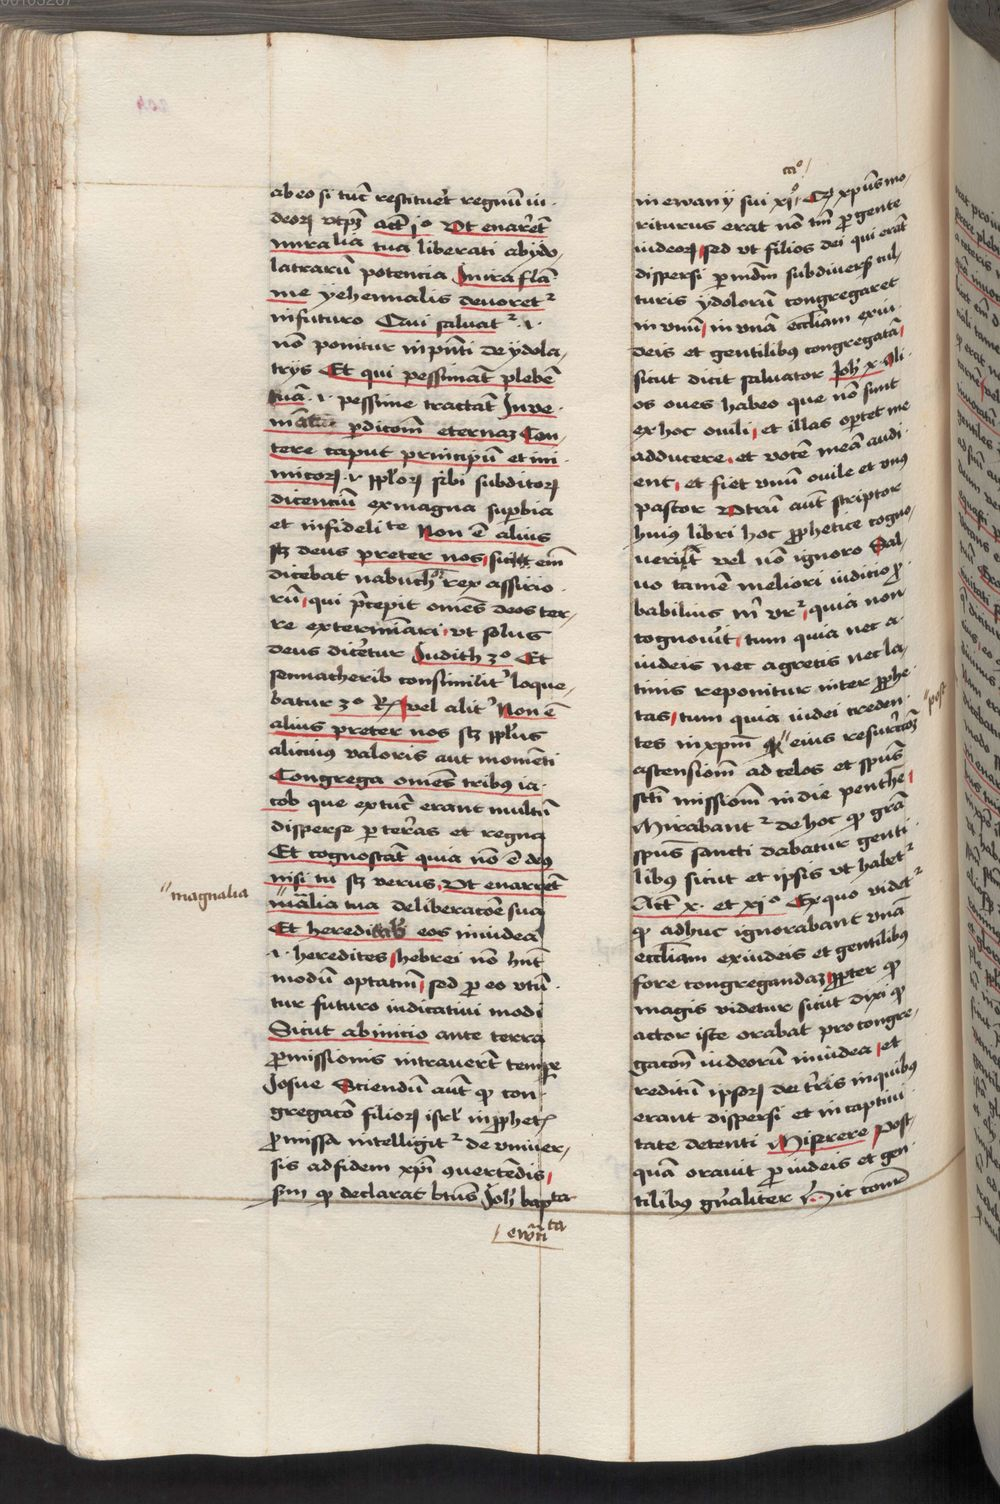 ab eo si tūc restituet̄ regnū iu-
deoꝝ vtpꝫ act̄ jº Vt enar̄ēt
miralia tua liberati ab ydo-
latrarū potencia In ira flā-
me yehennalis devoret²
in futuro Qui saluat² .i.
nō ponitur in pn̄ti de ydola-
trys Et qui pessimāt plebē
tuā .i. pessime tractāt Inve-
perdicōm eternaꝫ Con-
tere caput principū et ini-
micoꝝ .i. pplōꝝ sibi subditoꝝ
dicenciū ex magna supbia
et infidelite Non ē alius
sꝫ deus preter nos sicut em̄
dicebat nabuchº rex assirio-
rū qui p̄cepit om̄es deos ter-
re exterminari vt solus
deus dicetur Judith 3º Et
sennacherib consimilit² loque-
batur 3º Rͬ vel alit² Non ē
alius preter nos sꝫ pplūs
alicuius valoris aut momēti
Congrega om̄es tribꝰ ia-
cob que extūc erant multū
disperse per terras et regna
Et cognoscāt quia nō ē deꝰ
nisi tu sꝫ verus Vt enarrēt
magnalia
mālia tua deliberacōe sua
Et eos in iudea
.i. heredites hebrei nō hn̄t
modū optatiū sed pro eo vtū-
tur futuro indicatiui modi
Sicut ab inicio ante terrā
promissionis intraverēt tempore
Josue Sciendū aūt ꝙ con-
gregacō filioꝝ isrl̄ in pphet̄
promissa intelligit² de vniuer-
sis ad fidem xp̄i ꝯuertēdis
sm̄ ꝙ declarat btūs Joh̄ bapta
ewāta
mº
in ewany sui xjº Qꝫ xpūs mo-
riturus erat nō tm̄ pro gente
iudeoꝝ sed vt filios dei qui erāt
dispersi per mdm̄ subdiuers̄ cul-
turis ydolorū congregaret
in vnū in vnā eccl̄iam ex iu-
deis et gentilibꝰ congregatā
sicut dicit saluator Joh̄ x Ali-
os oves habeo que nō sunt
ex hoc ouili et illas oꝑtet me
adducere et vocē meā audi-
ent et fiet vnū ouile et vnꝰ
pastor Vtrū aūt scriptor
huiꝰ libri hoc pphetice cogno-
uerit vel nō ignoro Sal-
uo tamē meliori iudicio pro-
babilius m̄ vr² quia non
cognouit tum quia nec a
iudeis nec a grecis nec la-
tinis reponitur inter pphe-
tas tum quia iudei creden-
tes in xpm̄ post eius resurrccōꝫ
ascensiōm ad celos et spūs
scti missiōm in die penthe
Mirabant² de hoc ꝙ grā
spūs sancti dabatur genti-
libus sicut et ipsis vt habet²
Act̄ x et xjº Ex quo videt²
ꝙ adhuc ignorabant vnā
eccl̄iam ex iudeis et gentilibꝰ
fore congregandaꝫ ppter ꝙ
magis videtur sicut dixi ꝙ
actor iste orabat pro congre-
gacōn iudeorū in iudea et
reditū ipsoꝝ de tr̄ris in quibꝰ
erant dispersi et in captiui-
tate detenti Miserere Post-
quā orauit pro iudeis et gen-
tilibꝰ gn̄aliter